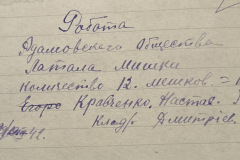 Работа
Адамовского Общества
Латала мишки
количество 12. мешков. =
Егоро Кравченко. Настас.
42. Кладр/ Дмитріев.